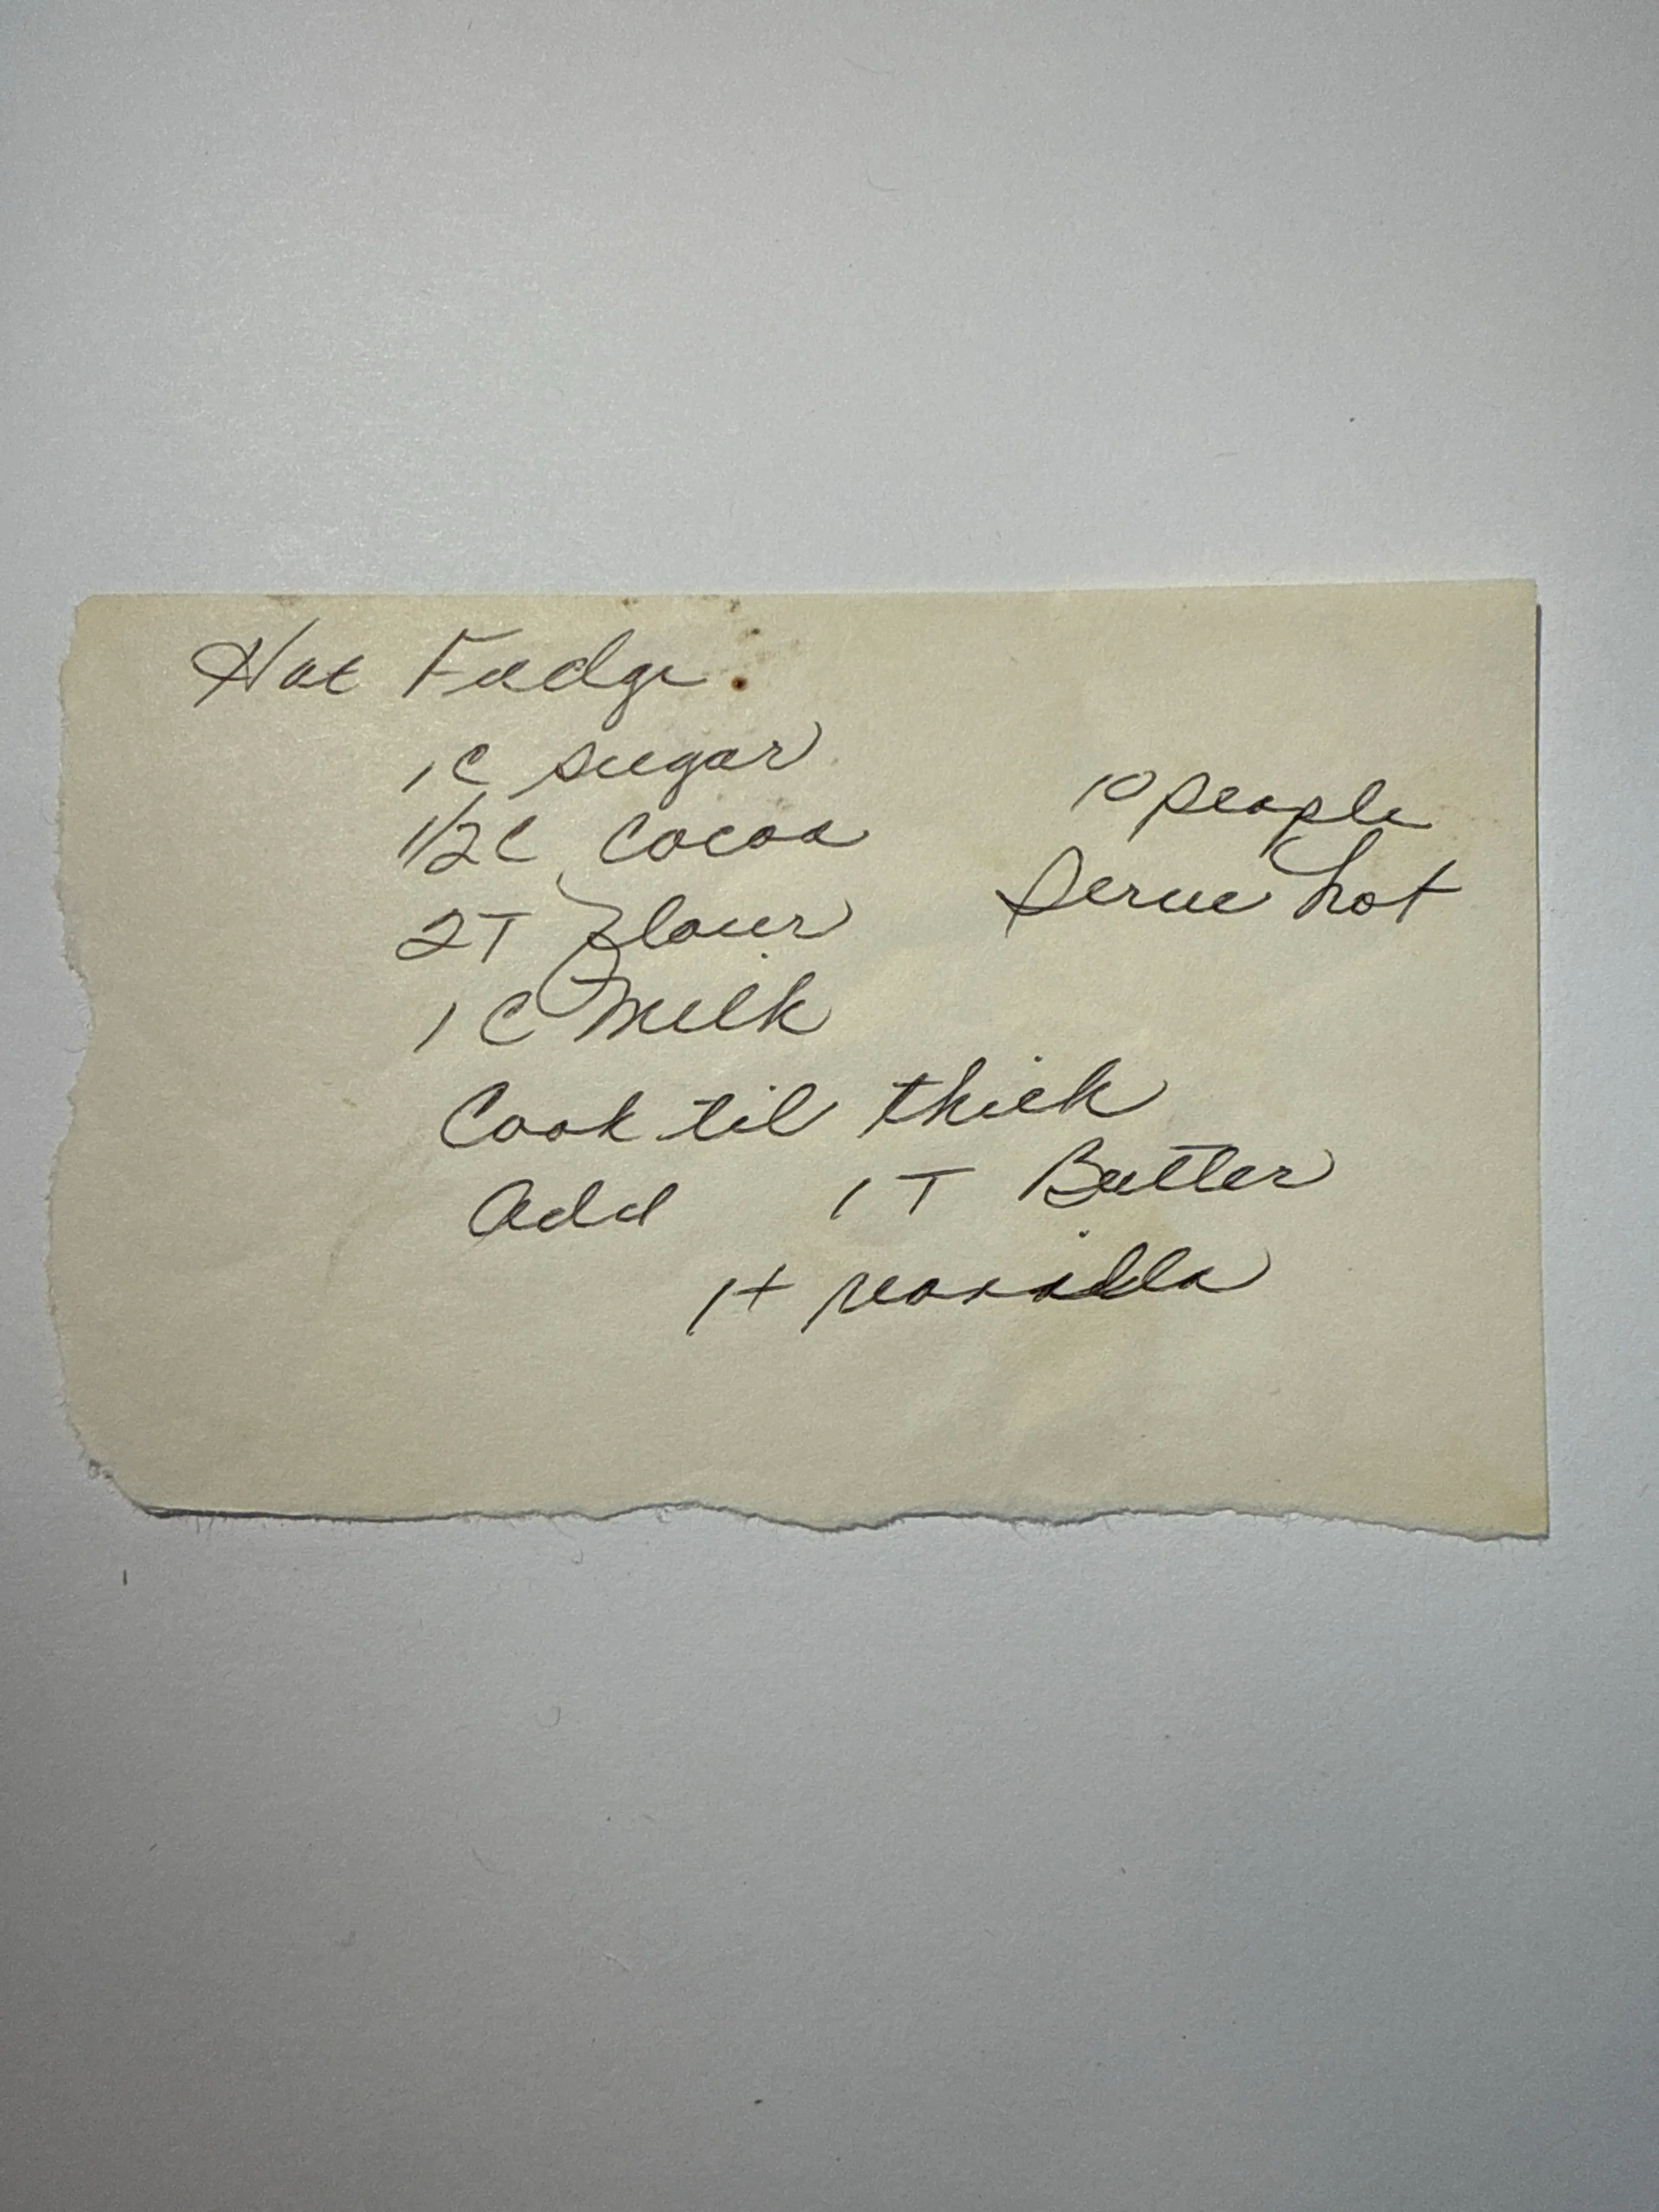 Hot Fudge
1C sugar
1/2C Cocoa
2T flour
1C Milk
10 people
Serve hot
Cook til thick
Add 1T Butter
1t vanilla